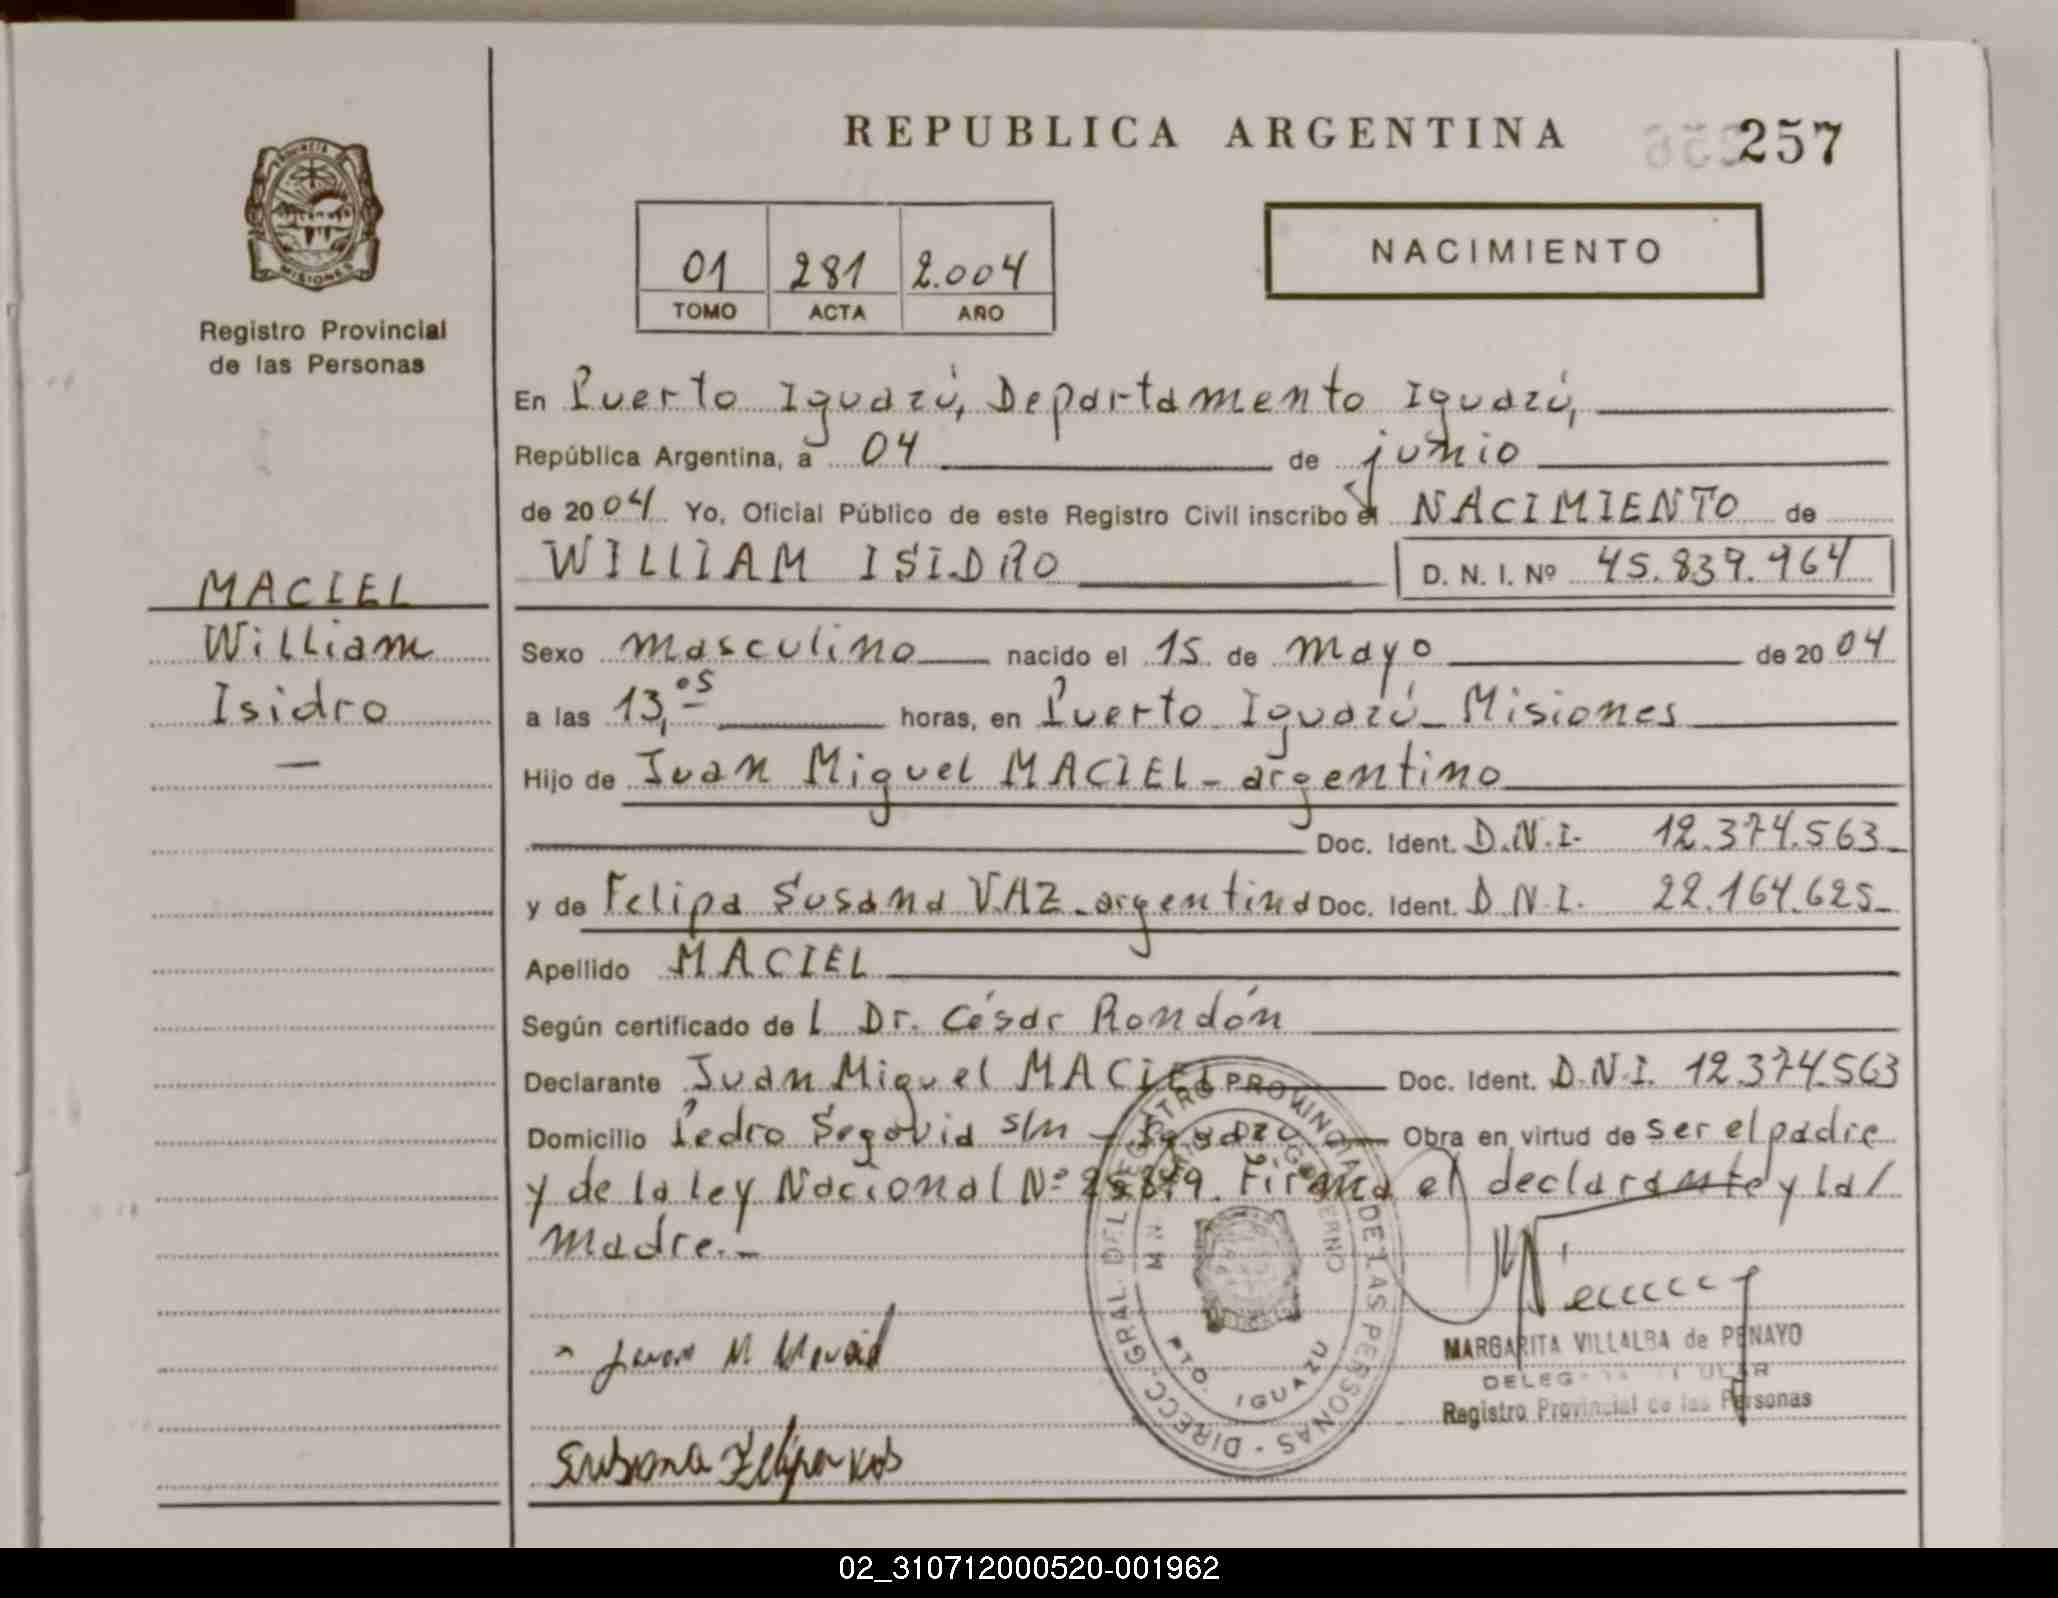 REPUBLICA ARGENTINA
257
PROVINCIA DE
MISIONES
Registro Provincial
de las Personas
01 281 2.004
TOMO ACTA AÑO
NACIMIENTO
En Puerto Iguazú, Departamento Iguazú,
República Argentina, a 04 de junio
de 2004 Yo, Oficial Público de este Registro Civil inscribo el NACIMIENTO de
WILLIAM ISIDRO D. N. I. Nº 45.839.964
MACIEL
William
Isidro
—
Sexo masculino nacido el 15 de mayo de 2004
a las 13,05 horas, en Puerto Iguazú - Misiones
Hijo de Juan Miguel MACIEL - argentino
Doc. Ident. D.N.I. 12.374.563
y de Felipa Susana VAZ - argentina Doc. Ident. D.N.I. 22.164.625
Apellido MACIEL
Según certificado de l Dr. César Rondón
Declarante Juan Miguel MACIEL Doc. Ident. D.N.I. 12.374.563
Domicilio Pedro Segovia s/n - Iguazú Obra en virtud de ser el padre
y de la ley Nacional Nº Firma el declarante y la/
madre.-
DIRECC. GRAL. DEL REGISTRO PROVINCIAL DE LAS PERSONAS
GOBIERNO
PTO. IGUAZU
Juan M Maciel
MARGARITA VILLALBA de PENAYO
Registro Provincial de las Personas
Susana Felipa Vas
02_310712000520-001962